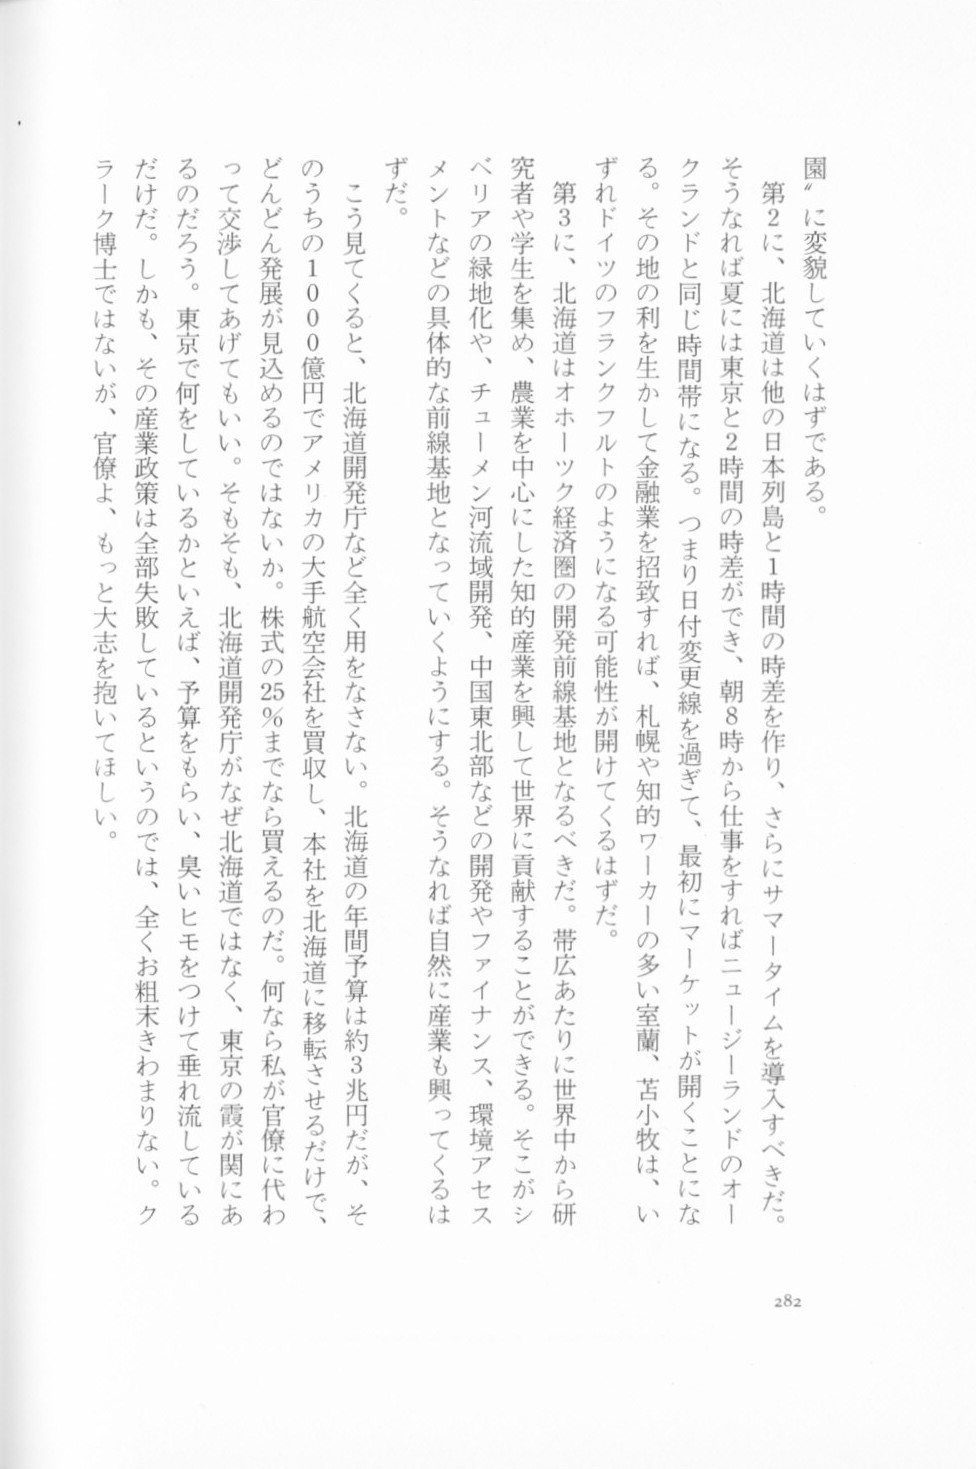 園〟に変貌していくはずである。
第2に、北海道は他の日本列島と1時間の時差を作り、さらにサマータイムを導入すべきだ。
そうなれば夏には東京と2時間の時差ができ、朝8時から仕事をすればニュージーランドのオー
クランドと同じ時間帯になる。つまり日付変更線を過ぎて、最初にマーケットが開くことにな
る。その地の利を生かして金融業を招致すれば、札幌や知的ワーカーの多い室蘭、苫小牧は、い
ずれドイツのフランクフルトのようになる可能性が開けてくるはずだ。
第3に、北海道はオホーツク経済圏の開発前線基地となるべきだ。帯広あたりに世界中から研
究者や学生を集め、農業を中心にした知的産業を興して世界に貢献することができる。そこがシ
ベリアの緑地化や、チューメン河流域開発、中国東北部などの開発やファイナンス、環境アセス
メントなどの具体的な前線基地となっていくようにする。そうなれば自然に産業も興ってくるは
ずだ。
こう見てくると、北海道開発庁など全く用をなさない。北海道の年間予算は約3兆円だが、そ
のうちの1000億円でアメリカの大手航空会社を買収し、本社を北海道に移転させるだけで、
どんどん発展が見込めるのではないか。株式の25%までなら買えるのだ。何なら私が官僚に代わ
って交渉してあげてもいい。そもそも、北海道開発庁がなぜ北海道ではなく、東京の霞が関にあ
るのだろう。東京で何をしているかといえば、予算をもらい、臭いヒモをつけて垂れ流している
だけだ。しかも、その産業政策は全部失敗しているというのでは、全くお粗末きわまりない。ク
ラーク博士ではないが、官僚よ、もっと大志を抱いてほしい。
282